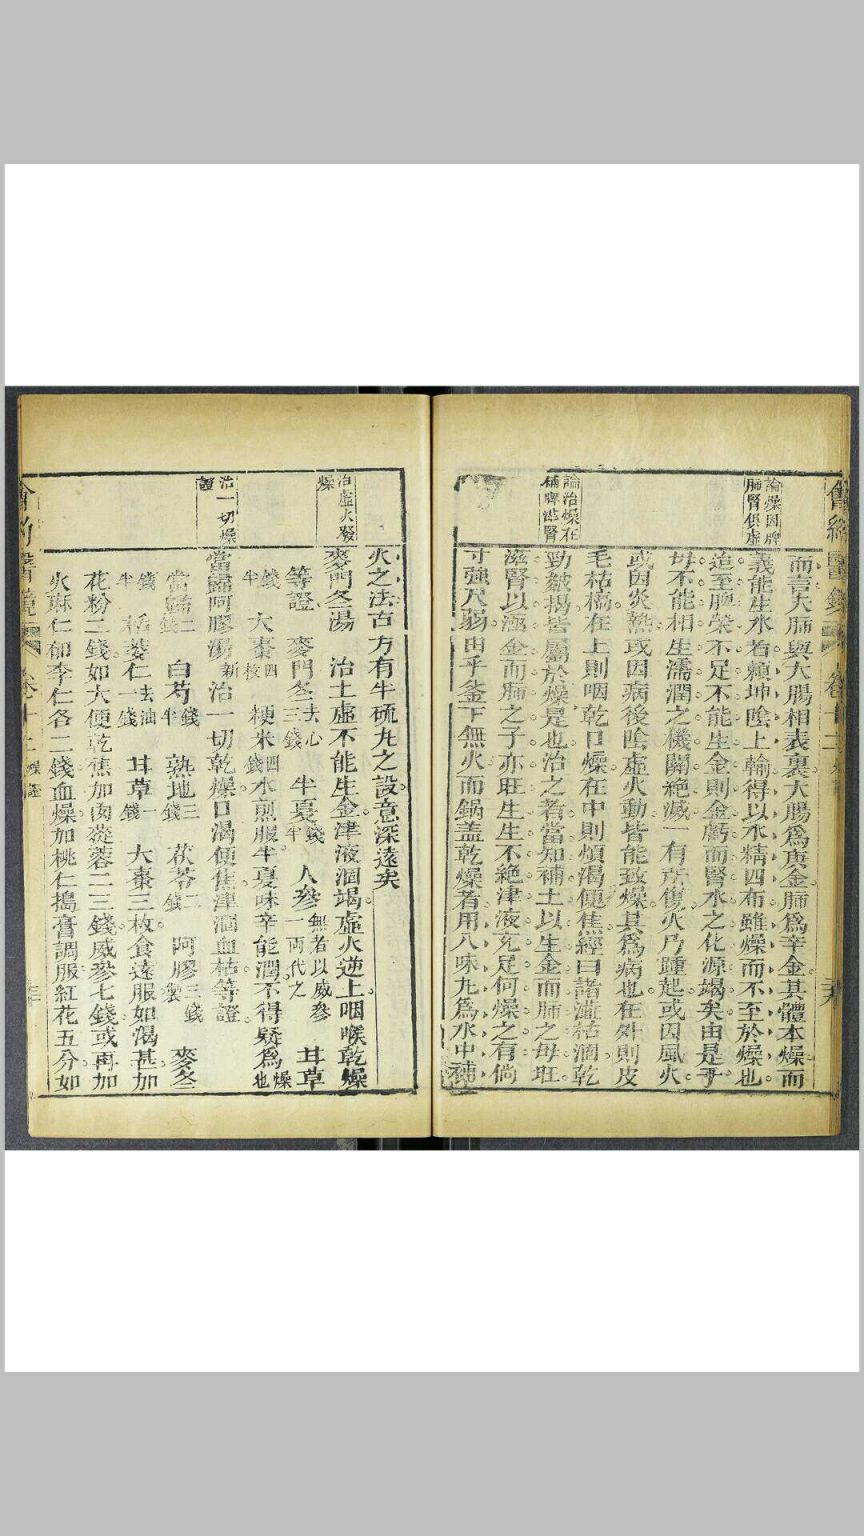 論燥因脾
肺腎俱虛
而言大肺與大腸相表裏大腸為庚金肺為辛金其體本燥而
義能生水若賴坤陰上輸得以水精四布雖燥而不至於燥也
迨至脾榮不足不能生金則金虧而腎水之化源竭矣由是子
母不能相生濡潤之機關絕滅一有所傷火乃踵起或因風火
或因炎熱或因病後陰虛火動皆能致燥其為病也在外則皮
毛枯槁在上則咽乾口燥在中則煩渴便焦經曰諸濇枯涸乾
論治燥在
補脾滋腎
勁皴揭皆屬於燥是也治之者當知補土以生金而肺之母旺
滋腎以涵金而肺之子亦旺生生不絕津液充足何燥之有倘
寸強尺弱由乎釜下無火而鍋蓋乾燥者用八味丸為水中補
火之法古方有半硫丸之設意深遠矣
治虛火發
燥
麥門冬湯 治土虛不能生金津液涸竭虛火逆上咽喉乾燥
等證 麥門冬去心三錢 半夏錢半 人參無者以威參一兩代之 甘草
錢半 大棗四枚 粳米四錢 水煎服半夏味辛能潤不得疑為燥也
治一切燥
證
當歸阿膠湯新 治一切乾燥口渴便焦津涸血枯等證
當歸二錢 白芍錢半 熟地三錢 茯苓二錢 阿膠三錢 麥冬
錢半 栝蔞仁去油一錢 甘草一錢 大棗三枚食遠服如渴甚加
花粉二錢如大便乾焦加肉蓯蓉二三錢威參七錢或再加
火麻仁郁李仁各二錢血燥加桃仁搗膏調服紅花五分如
會約醫鏡 卷十二 燥證